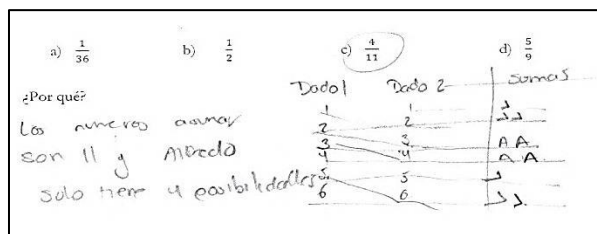 a) 1/36 b) 1/2 c) 4/11 d) 5/9
¿Por qué?
Los numeros asumar
son 11 y Alfredo
solo tiene 4 posibilidades
Dado 1 Dado 2 Sumas
1 1 J
2 2 JJ
3 3 AA
4 4 AA
5 5 J
6 6 JJ